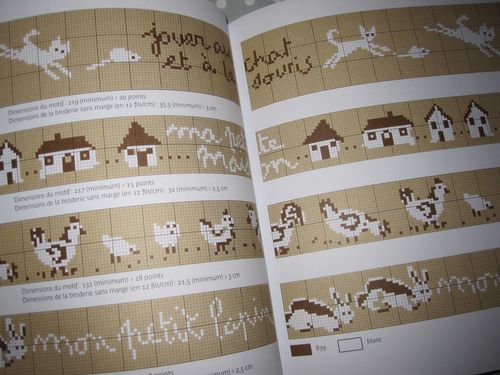 jouer au chat
et à la souris
Dimensions du motif : 219 (minimum) × 20 points
Dimensions de la broderie sans marge (en 12 fils/cm) : 35,5 (minimum) × 3 cm
ma petite
maison
Dimensions du motif : 217 (minimum) × 15 points
Dimensions de la broderie sans marge (en 12 fils/cm) : 32 (minimum) × 2,5 cm
Dimensions du motif : 131 (minimum) × 18 points
Dimensions de la broderie sans marge (en 12 fils/cm) : 21,5 (minimum) × 3 cm
mon petit lapin
mon
points
2,5 cm
839
blanc